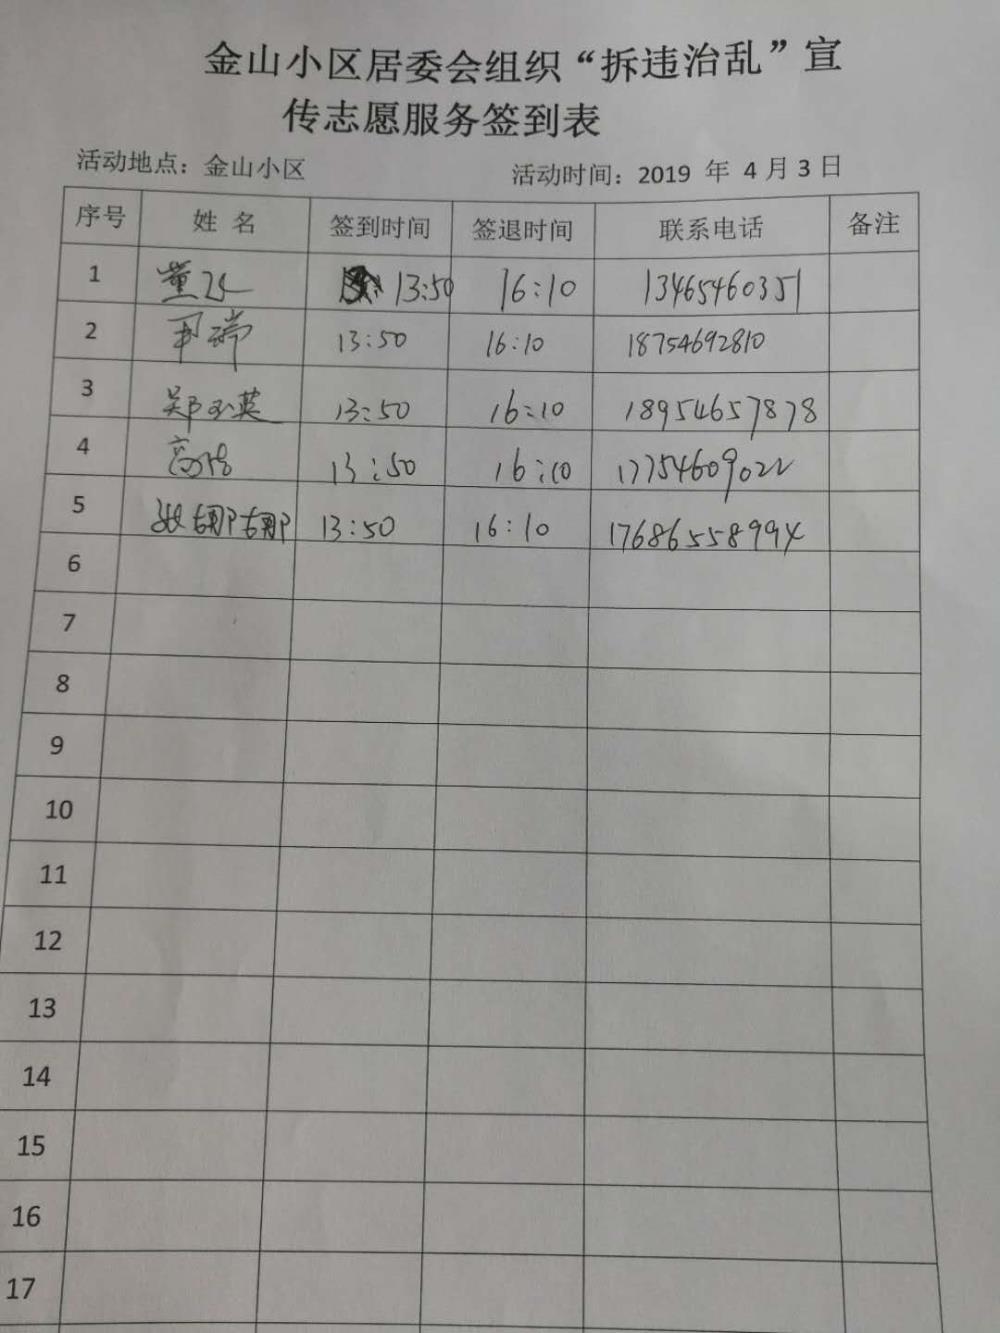 金山小区居委会组织“拆违治乱”宣
传志愿服务签到表
活动地点：金山小区 活动时间：2019 年 4 月 3 日
序号 姓 名 签到时间 签退时间 联系电话 备注
1 董 13:50 16:10 13465460351
2 尹瑞 13:50 16:10 18754692810
3 郑玉英 13:50 16:10 18954657878
4 高 13:50 16:10 17754609022
5 张娜娜 13:50 16:10 17686558994
6
7
8
9
10
11
12
13
14
15
16
17